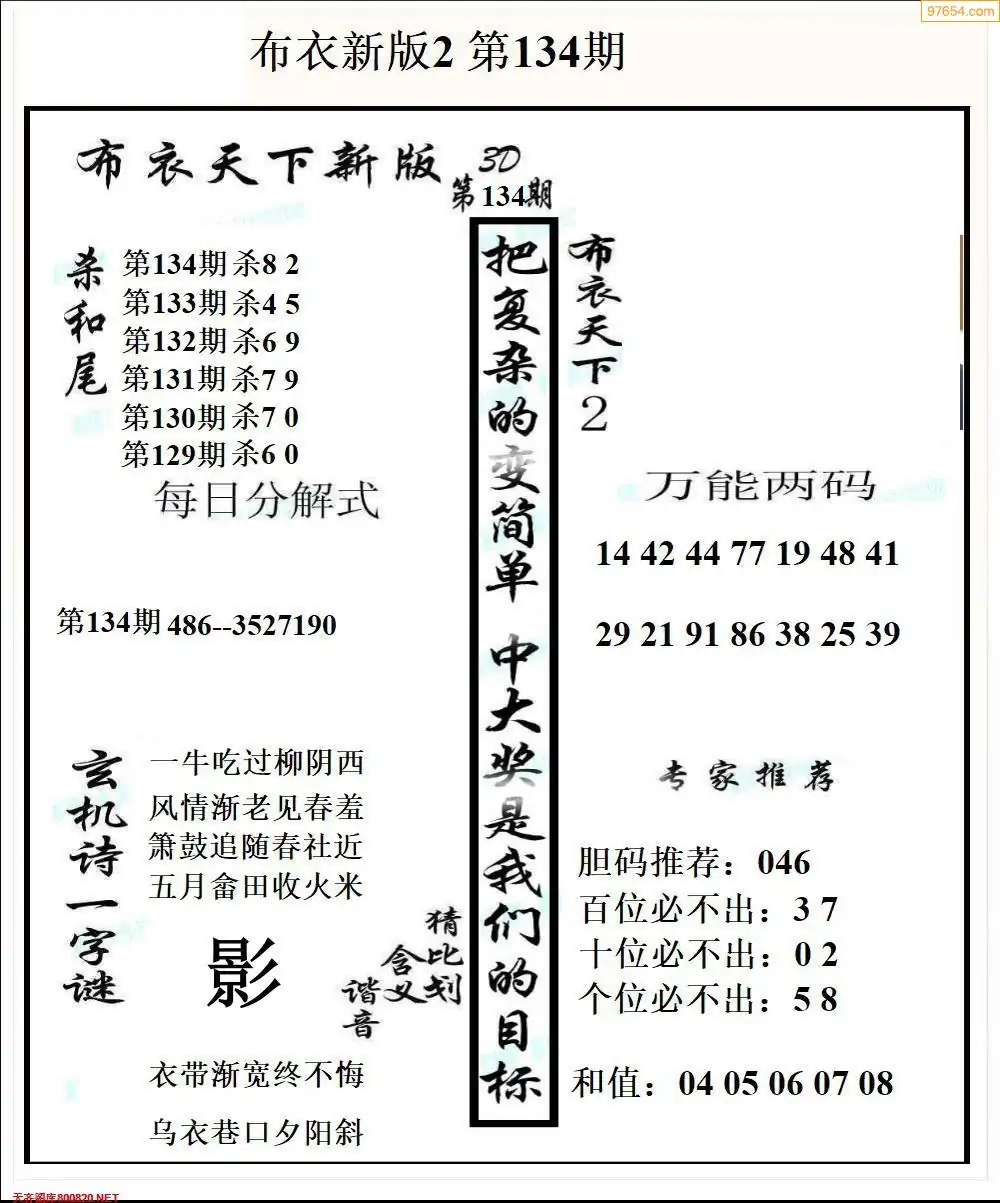 97654.com
布衣新版2 第134期
布衣天下新版
3D
第134期
杀和尾
第134期杀8 2
第133期杀4 5
第132期杀6 9
第131期杀7 9
第130期杀7 0
第129期杀6 0
每日分解式
第134期486--3527190
玄机诗一字谜
一牛吃过柳阴西
风情渐老见春羞
箫鼓追随春社近
五月畲田收火米
影
猜比划
含义
谐音
衣带渐宽终不悔
乌衣巷口夕阳斜
把复杂的变简单 中大奖是我们的目标
布衣天下2
万能两码
14 42 44 77 19 48 41
29 21 91 86 38 25 39
专家推荐
胆码推荐：046
百位必不出：3 7
十位必不出：0 2
个位必不出：5 8
和值：04 05 06 07 08
天齐图库800820.NET